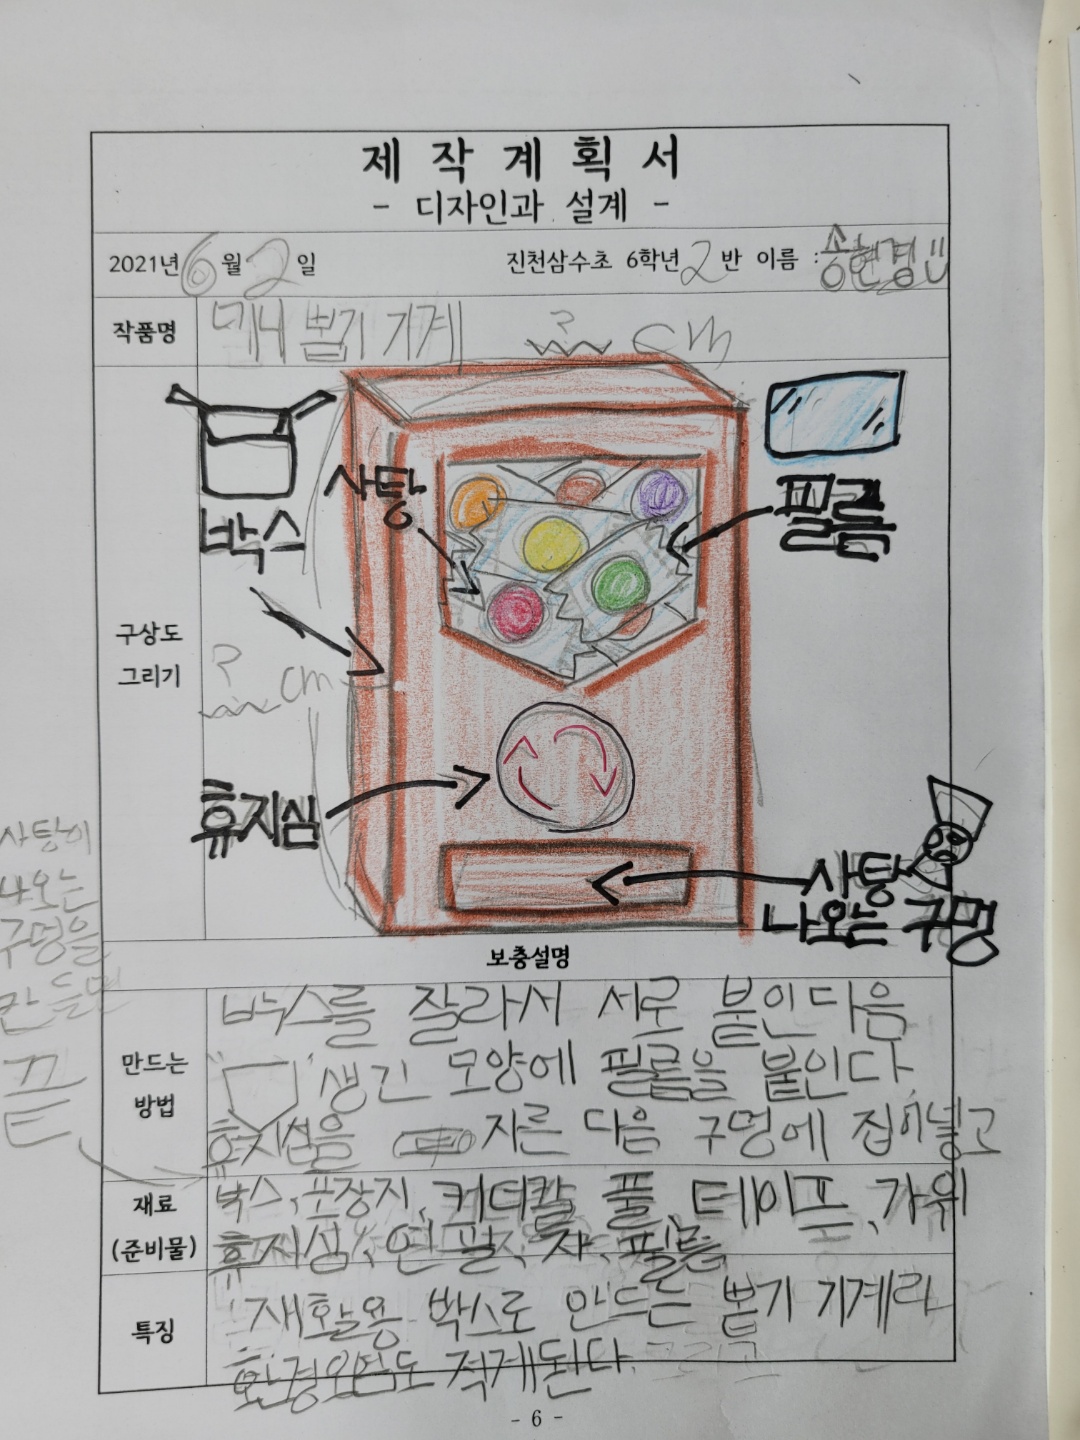 제 작 계 획 서
- 디자인과 설계 -
2021년 6월 2일 진천삼수초 6학년 2반 이름 : 송현경
작품명 뽑기 기계
? cm
박스
사탕
필름
구상도
그리기
? cm
휴지심
사탕
나오는 구멍
보충설명
만드는
방법
박스를 잘라서 서로 붙인다음
" " 생긴 모양에 필름을 붙인다.
휴지심을 자른 다음 구멍에 집어넣고
사탕이
나오는
구멍을
만들면
끝
재료
(준비물)
박스, 포장지, 커터칼, 풀, 테이프, 가위
휴지심, 연필, 자, 필름
특징
재활용 박스로 만드는 뽑기 기계라
환경오염도 적게된다. 그리고
- 6 -